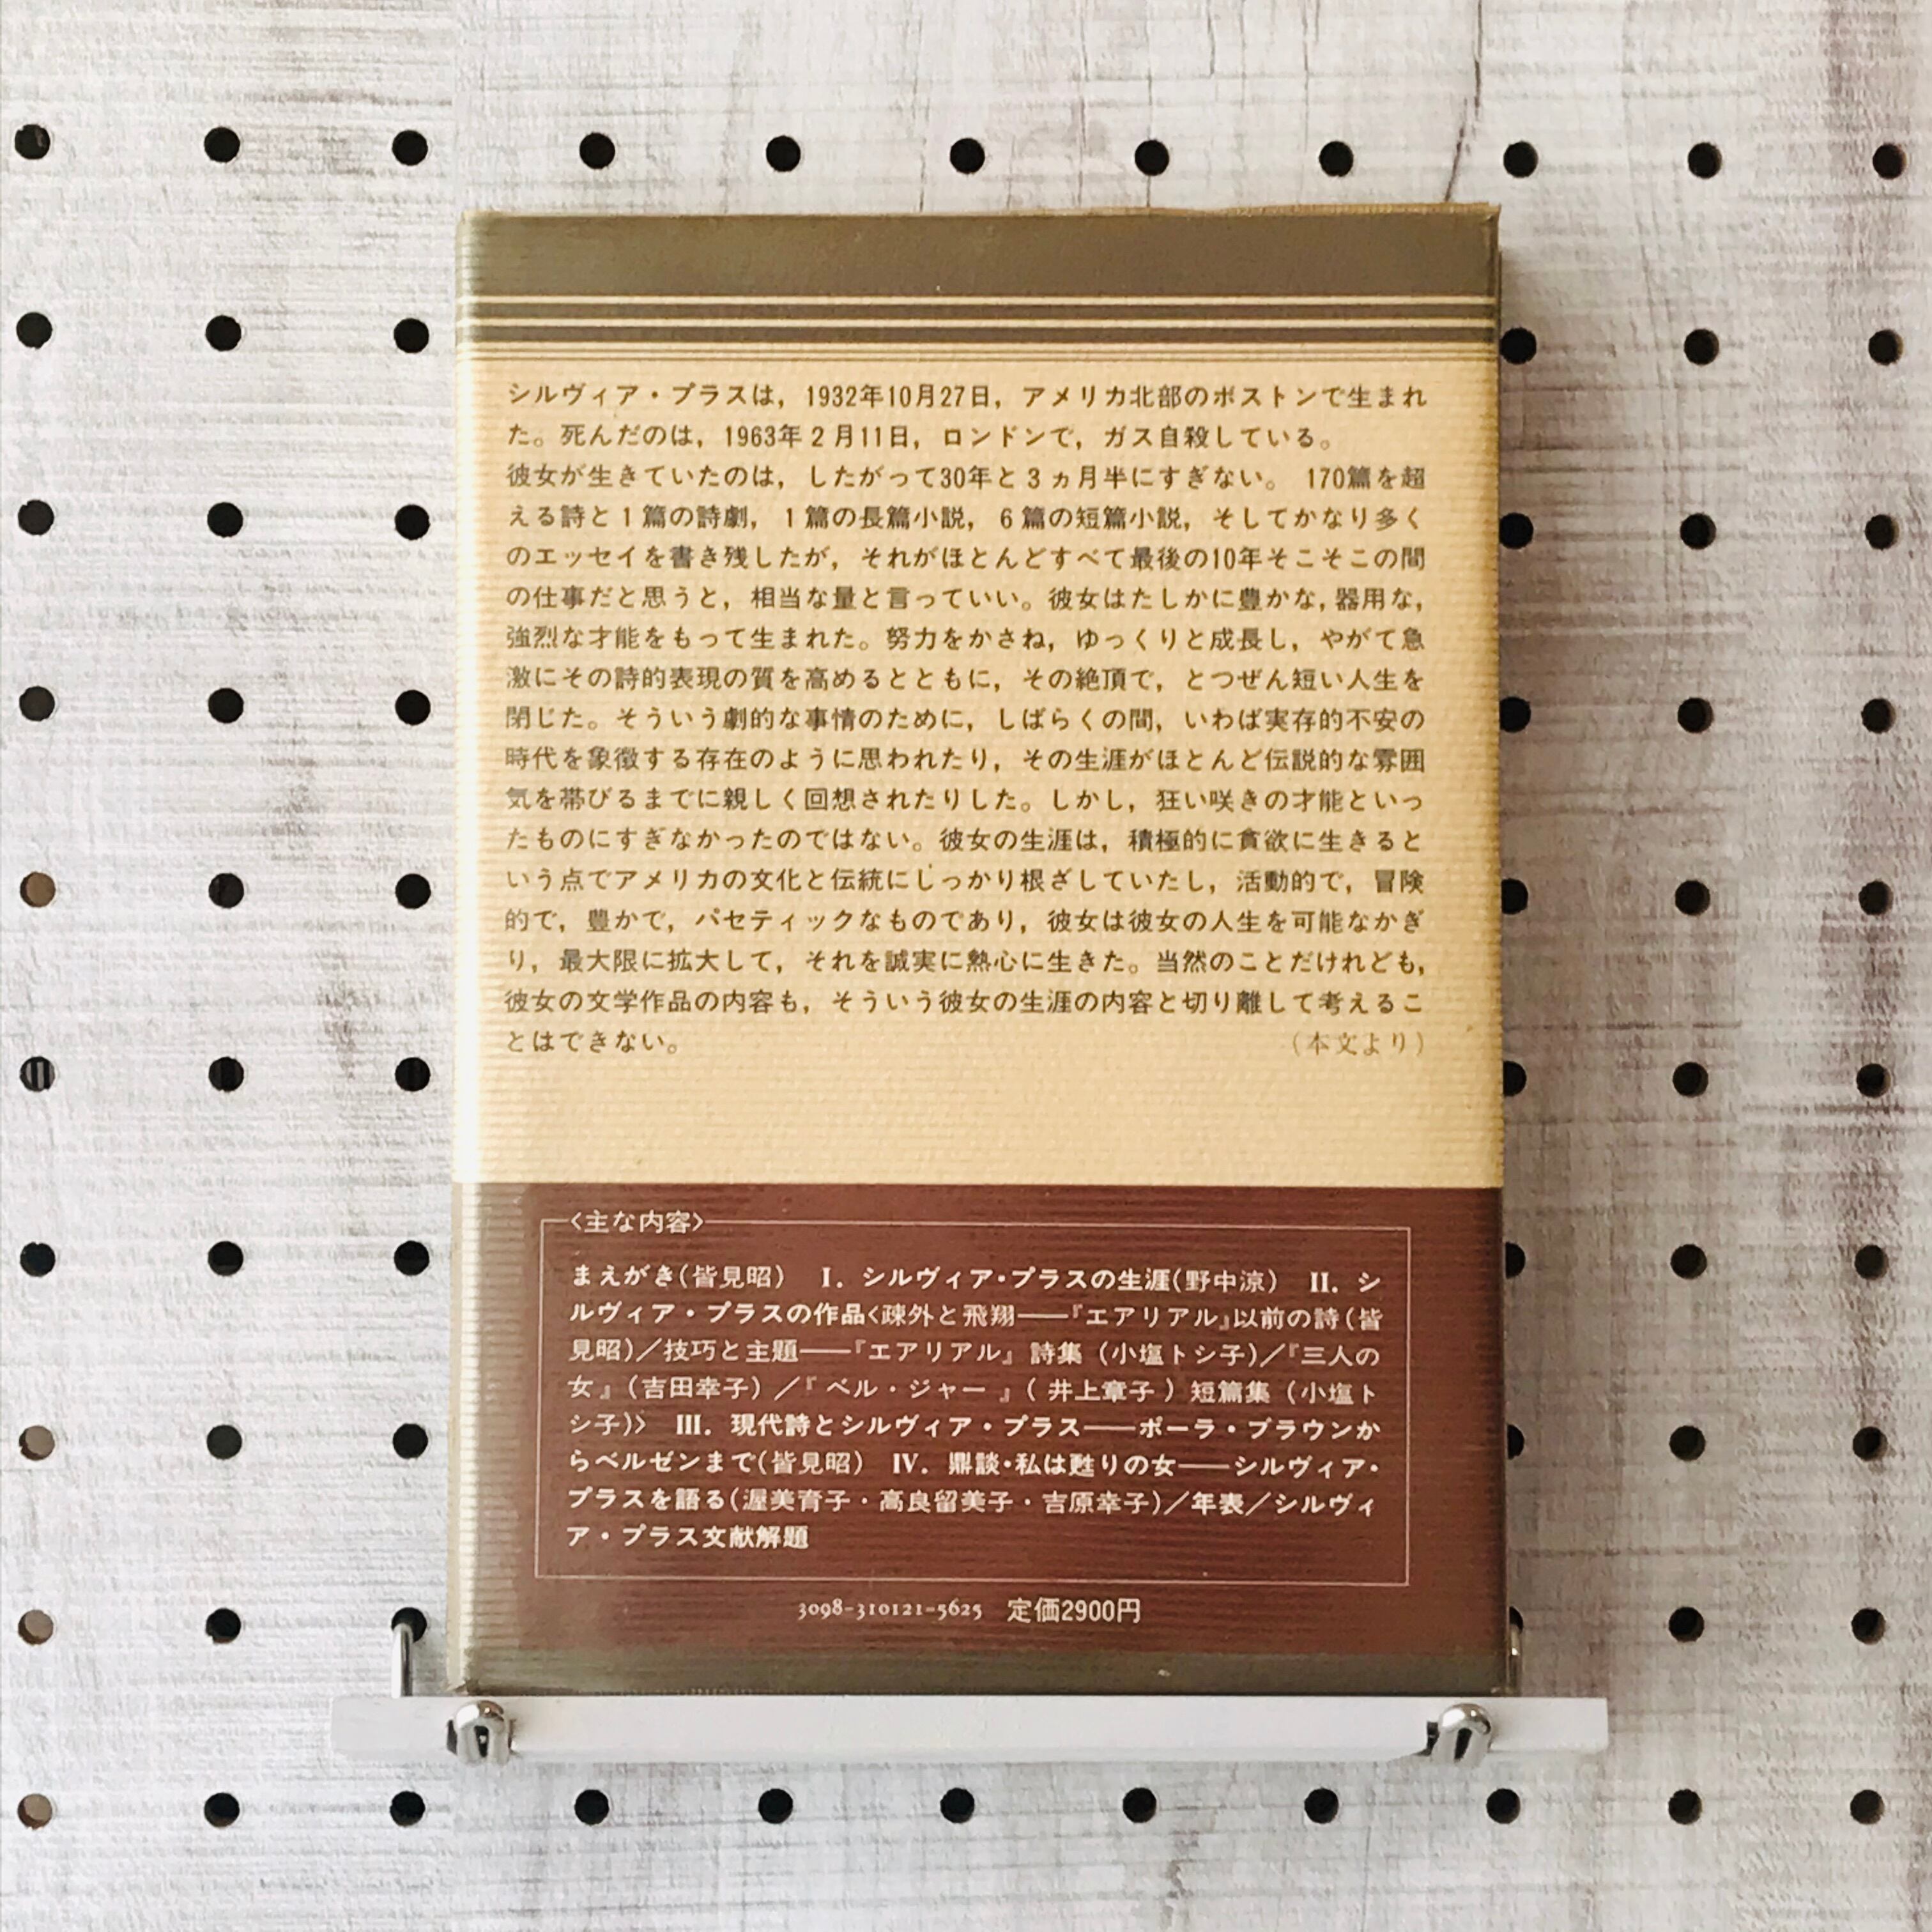 シルヴィア・プラスは，1932年10月27日，アメリカ北部のボストンで生まれ
た。死んだのは，1963年2月11日，ロンドンで，ガス自殺している。
彼女が生きていたのは，したがって30年と3ヵ月半にすぎない。 170篇を超
える詩と1篇の詩劇，1篇の長篇小説，6篇の短篇小説，そしてかなり多く
のエッセイを書き残したが，それがほとんどすべて最後の10年そこそこの間
の仕事だと思うと，相当な量と言っていい。彼女はたしかに豊かな，器用な，
強烈な才能をもって生まれた。努力をかさね，ゆっくりと成長し，やがて急
激にその詩的表現の質を高めるとともに，その絶頂で，とつぜん短い人生を
閉じた。そういう劇的な事情のために，しばらくの間，いわば実存的不安の
時代を象徴する存在のように思われたり，その生涯がほとんど伝説的な雰囲
気を帯びるまでに親しく回想されたりした。しかし，狂い咲きの才能といっ
たものにすぎなかったのではない。彼女の生涯は，積極的に貪欲に生きると
いう点でアメリカの文化と伝統にしっかり根ざしていたし，活動的で，冒険
的で，豊かで，パセティックなものであり，彼女は彼女の人生を可能なかぎ
り，最大限に拡大して，それを誠実に熱心に生きた。当然のことだけれども，
彼女の文学作品の内容も，そういう彼女の生涯の内容と切り離して考えるこ
とはできない。 （本文より）
〈主な内容〉
まえがき（皆見昭） I．シルヴィア・プラスの生涯（野中涼） II．シ
ルヴィア・プラスの作品〈疎外と飛翔――『エアリアル』以前の詩（皆
見昭）／技巧と主題――『エアリアル』詩集（小塩トシ子）／『三人の
女』（吉田幸子）／『ベル・ジャー』（井上章子）短篇集（小塩ト
シ子）〉 III．現代詩とシルヴィア・プラス――ポーラ・ブラウンか
らベルゼンまで（皆見昭） IV．鼎談・私は甦りの女――シルヴィア・
プラスを語る（渥美育子・高良留美子・吉原幸子）／年表／シルヴィ
ア・プラス文献解題
3098-310121-5625 定価2900円